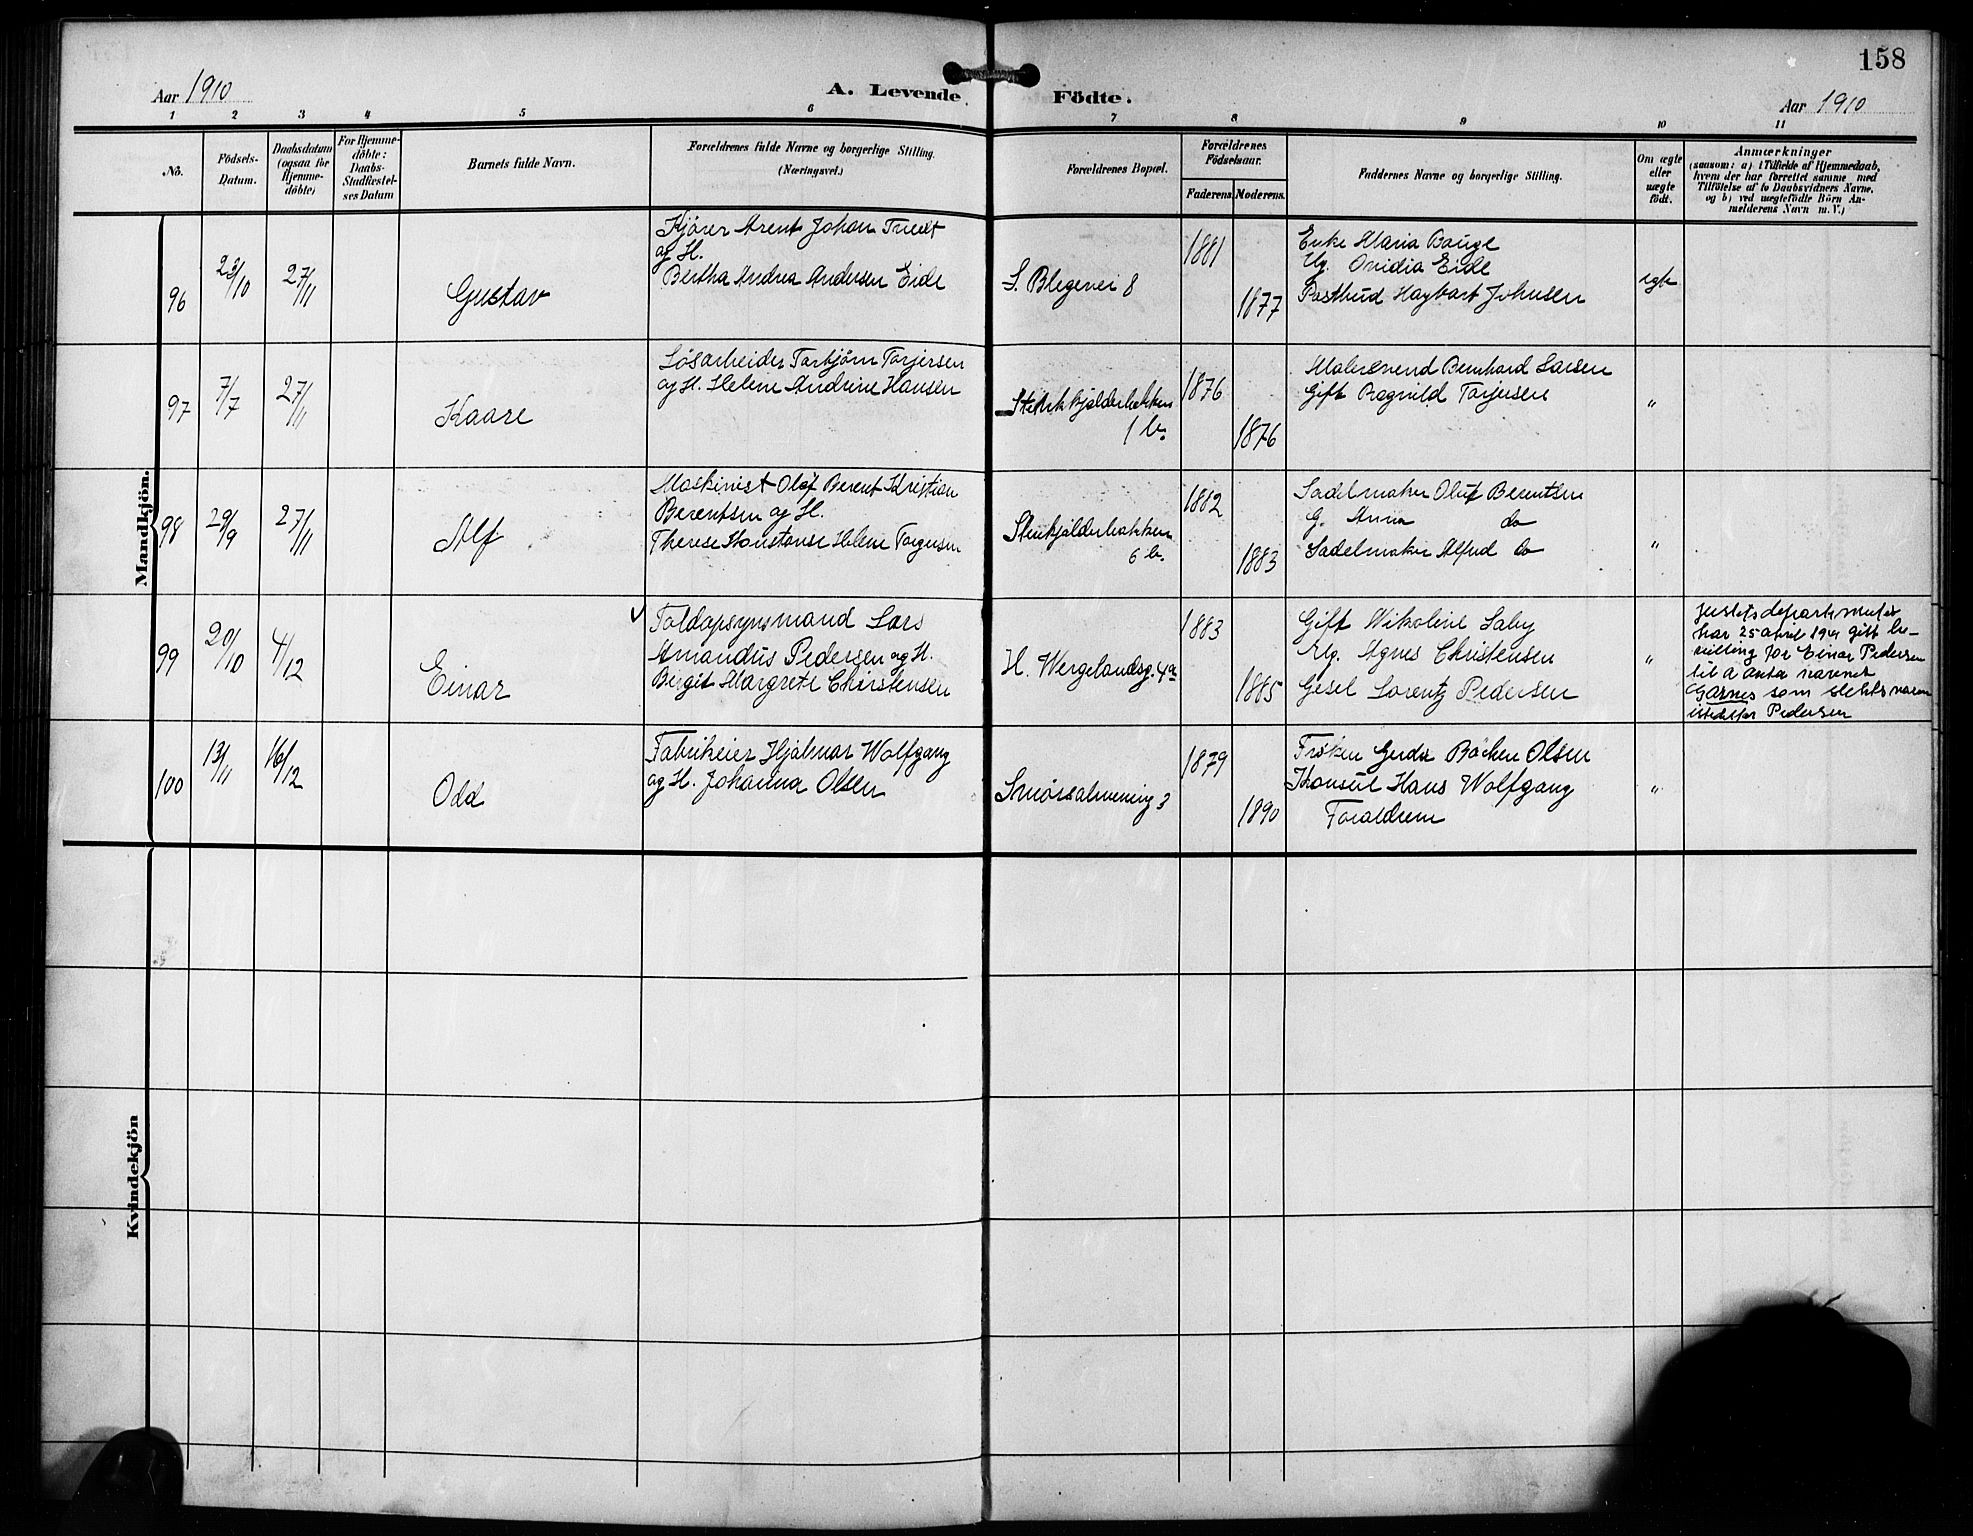 158
Aar 1910
A. Levende
Födte.
Aar 1910
1 2 3 4 5 6 7 8 9 10 11
No.
Födsels-
Datum.
Daabsdatum
(ogsaa for
Hjemme-
döbte)
For Hjemme-
döbte:
Daabs-
Stadfæstel-
ses Datum
Barnets fulde Navn.
Forældrenes fulde Navne og borgerlige Stilling.
(Næringsvei.)
Forældrenes Bopæl.
Forældrenes
Födselsaar.
Faderens.
Moderens.
Faddernes Navne og borgerlige Stilling.
Om ægte
eller
uægte
födt.
Anmærkninger
(saasom: a) i Tilfælde af Hjemmedaab,
hvem der har forrettet samme med
Tilföielse af to Daabsvidners Navne,
og b) ved uægtefödte Börn An-
melderens Navn m. V.)
Mandkjön.
96
23/10
27/11
Gustav
Kjører Arent Johan
og H.
Bertha Andrea Andersen Eide
S. Blegevei 8
1881
1877
Enke Maria Bauge
Ug. Ovidia Eide
Postbud Hagbart Johnsen
egte
97
7/7
27/11
Kaare
Løsarbeider Torbjørn Torjersen
og H. Helene Andrine Hansen
Stenkjelderbakken
1 b.
1876
1876
Malersvend Bernhard Larsen
Gift Ragnild Torjersen
"
98
29/9
27/11
Alf
Maskinist Olaf Berent Kristian
Berentsen og H.
Therese Konstanse Helene Torgersen
Stenkjelderbakken
6 b.
1882
1883
Sadelmaker Oluf Berentsen
G. Anna do
Sadelmaker Alfred do
"
99
20/10
4/12
Einar
Toldopsynsmand Lars
Amandus Pedersen og H.
Birgit Margrete Christensen
H. Wergelandsg. 4a
1883
1885
Gift Nikoline Saby
Ug. Agnes Christensen
Gesel Lorentz Pedersen
"
Justitsdepartementet
har 25 april 1941 gitt be-
villing for Einar Pedersen
til å anta navnet
Garnes som slektsnavn
istedetfor Pedersen
100
13/11
16/12
Odd
Fabrikeier Hjalmar Wolfgang
og H. Johanna Olsen
Smørsalmening 3
1879
1890
Frøken Gerda Böcken Olsen
Konsul Hans Wolfgang
Forældrene
"
Kvindekjön